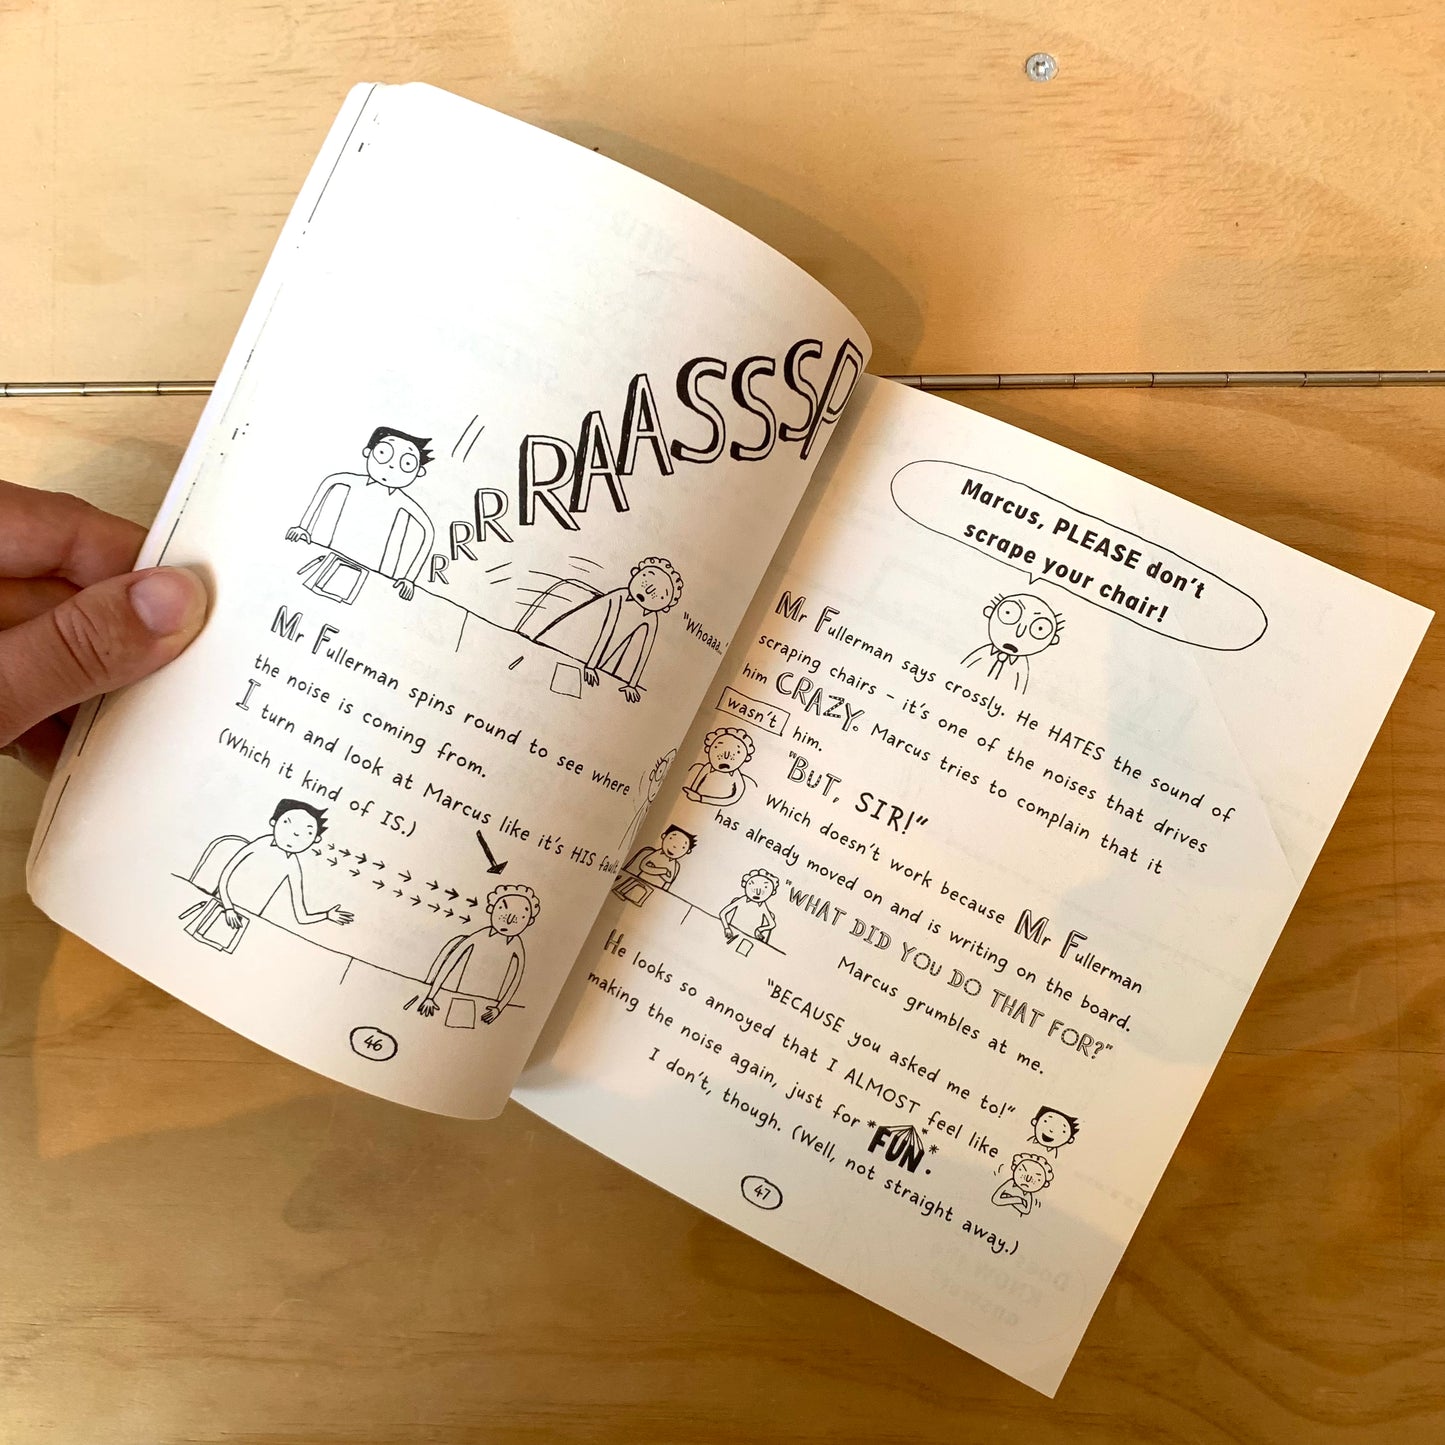 RRRRAAASSSSP
"Whoaaa.."
Mr Fullerman spins round to see where
the noise is coming from.
I turn and look at Marcus like it's HIS fault.
(Which it kind of IS.)
46
Marcus, PLEASE don't
scrape your chair!
Mr Fullerman says crossly. He HATES the sound of
scraping chairs - it's one of the noises that drives
him CRAZY. Marcus tries to complain that it
wasn't him.
"BUT, SIR!"
Which doesn't work because Mr Fullerman
has already moved on and is writing on the board.
"WHAT DID YOU DO THAT FOR?"
Marcus grumbles at me.
"BECAUSE you asked me to!"
He looks so annoyed that I ALMOST feel like
making the noise again, just for *FUN*.
I don't, though. (Well, not straight away.)
47